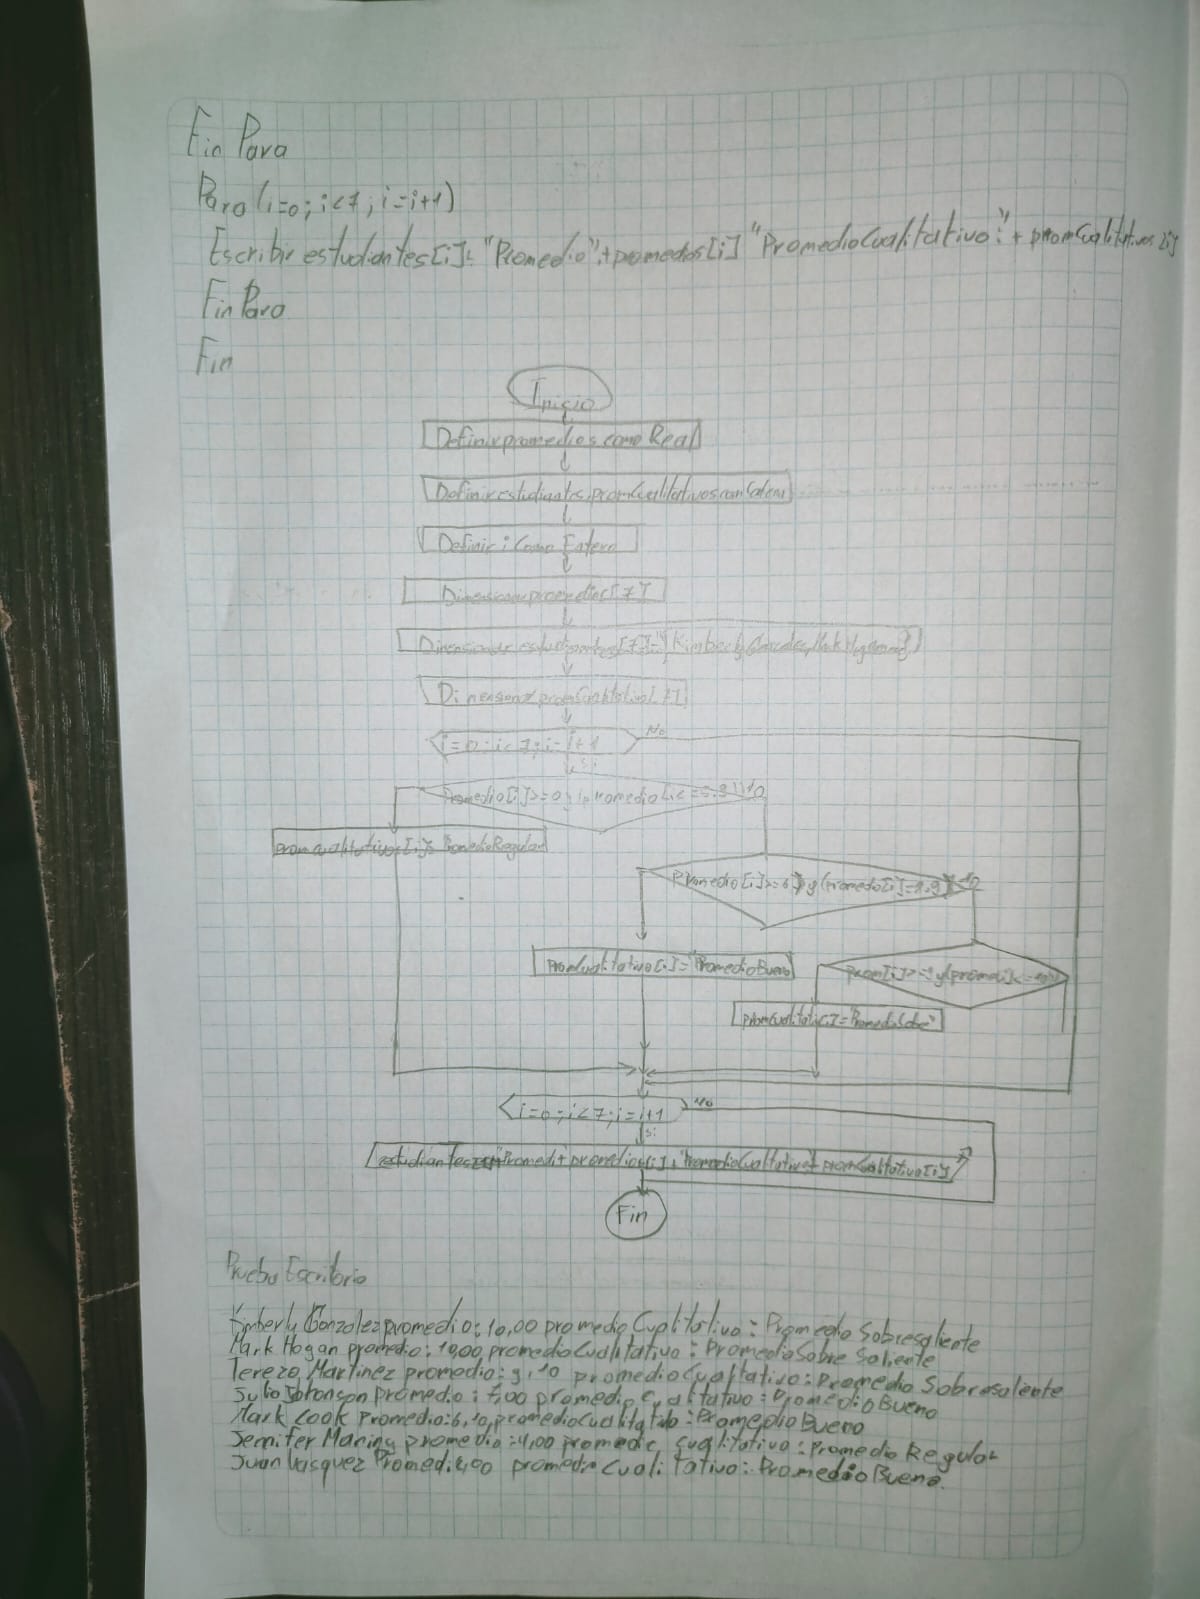 Fin Para
Para (i=0; i<7; i=i+1)
Escribir estudiantes[i], "Promedio":+promedios[i] "PromedioCualitativo:"+ promCualitativos[i]
Fin Para
Fin
Inicio
Definir promedios como Real
Definir estudiantes, promCualitativos como Cadena
Definir i Como Entero
Dimensionar promedios[7]
Dimensionar estudiantes[7]
Kimberly Gonzales, Mark Hogan
Dimensionar promCualitativo[7]
i=0; i<7; i=i+1
No
Si
Promedio[i]>=0 y promedio[i<=5.9
No
promCualitativos[i]="PromedioRegular
Promedio[i]>=6) y (promedio[i]=8.9)
No
PromCualitativo[i]="PromedioBueno
prom[i]>= y(prom[i]<=
promCualitat[i]="PromedioSobre"
i=0; i<7; i=i+1
No
Si
estudiantes "Promedi+promedios[i], "PromedioCualitativo"+promCualitativo[i]
Fin
Prueba Escritorio
Kimberly Gonzalez promedio: 10,00 promedio Cualitativo: Promedio Sobresaliente
Mark Hogan promedio: 10,00 promedio Cualitativo: Promedio Sobre Saliente
Tereza Martinez promedio: 9,10 promedio Cualitativo: Promedio Sobresalente
Julio Johonson promedio: 7,00 promedio Cualitativo: Promedio Bueno
Mark Cook Promedio: 6,10, promedio Cualitativo: Promedio Bueno
Jennifer Maning promedio: 4,00 promedio cualitativo: Promedio Regular
Juan Vasquez Promedi: promedio Cualitativo: Promedio Bueno.